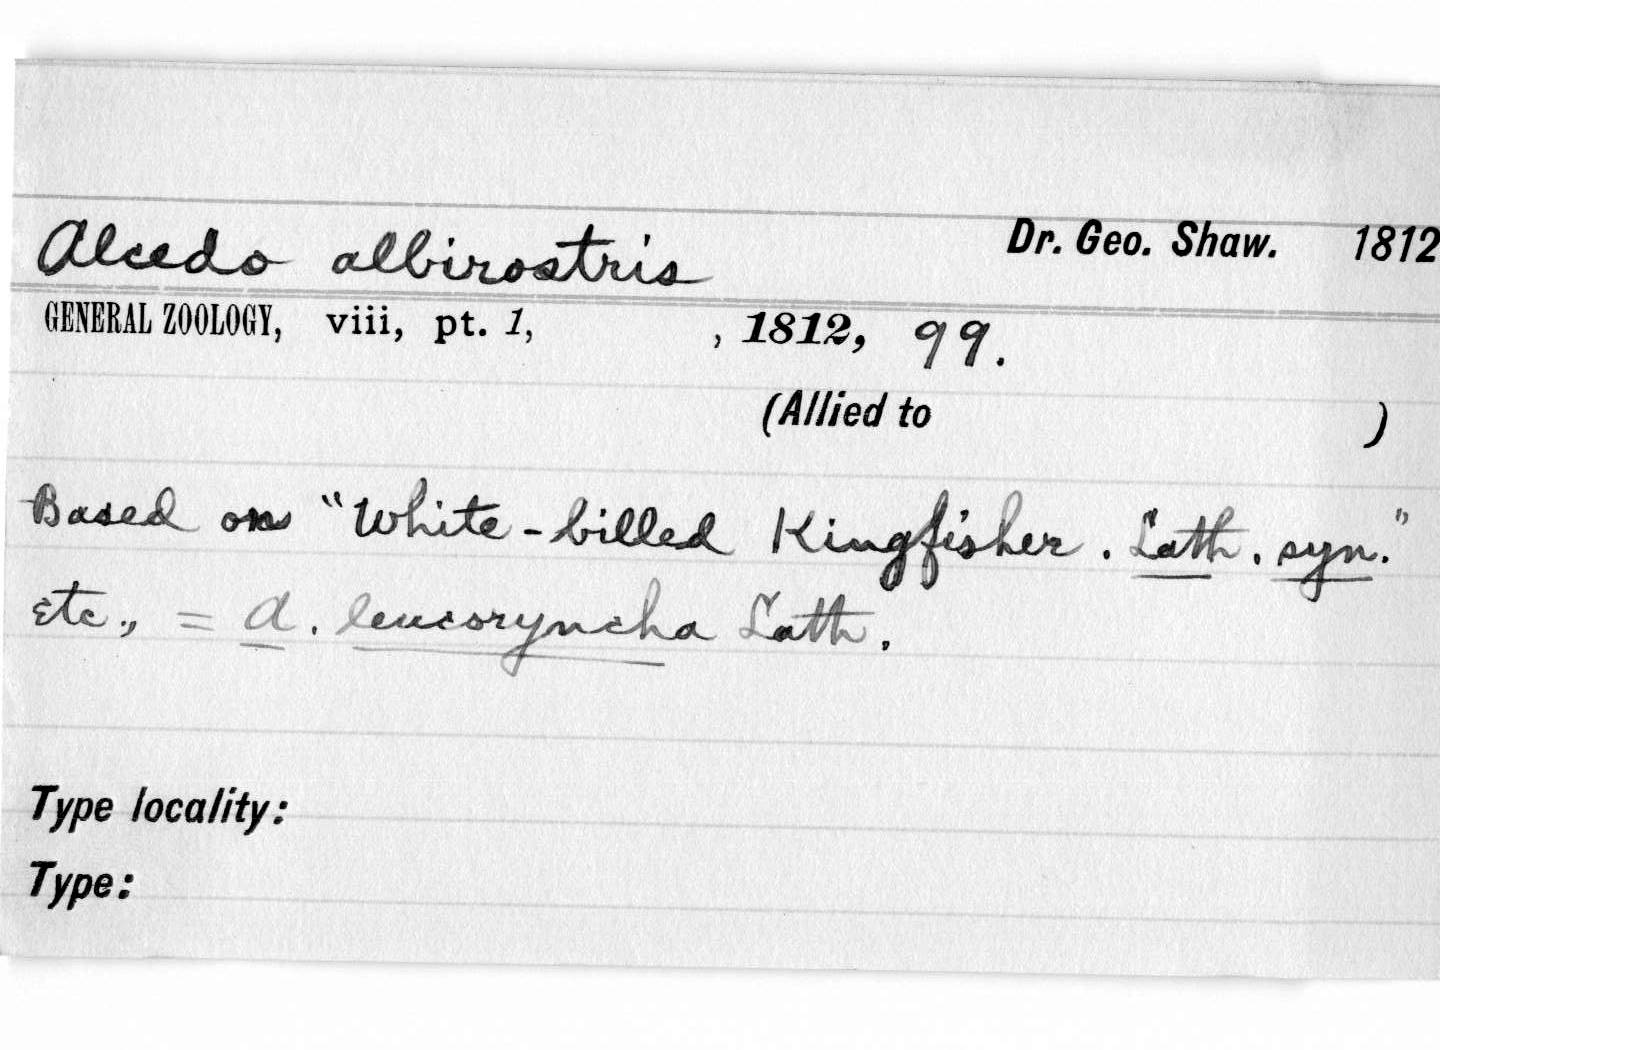 Alcedo albirostris Dr. Geo. Shaw. 1812
GENERAL ZOOLOGY, viii, pt. 1, , 1812, 99.
(Allied to )
Based on "White-billed Kingfisher. Lath. syn."
Etc., = A. leucoryncha Lath.
Type locality:
Type: